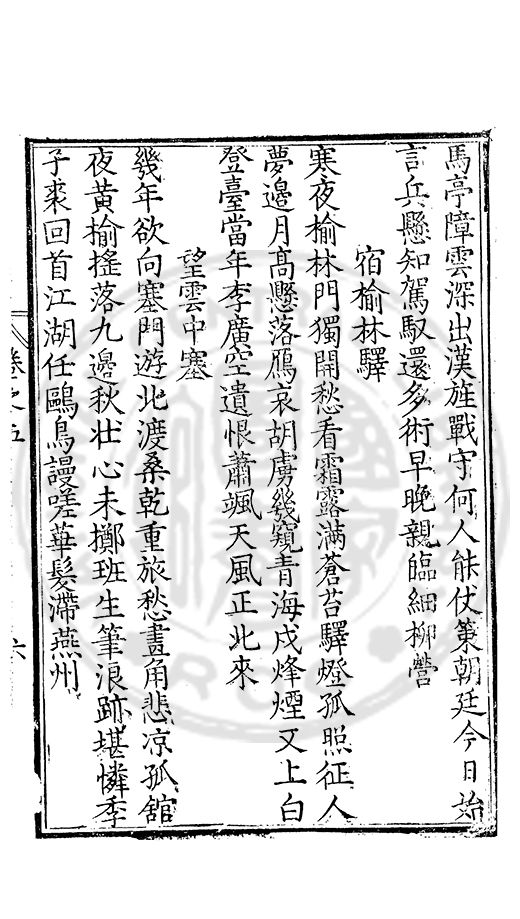 馬亭障雲深出漢旌戰守何人能仗策朝廷今日始
言兵懸知駕馭還多術早晚親臨細柳營
宿榆林驛
寒夜榆林門獨開愁看霜露滿蒼苔驛燈孤照征人
夢邊月高懸落鴈哀胡虜幾窺青海戍烽煙又上白
登臺當年李廣空遺恨蕭颯天風正北來
望雲中塞
幾年欲向塞門遊北渡桑乾重旅愁畫角悲凉孤舘
夜黃榆搖落九邊秋壯心未擲班生筆浪跡堪憐季
子裘回首江湖任鷗鳥謾嗟華髮滯燕州
卷之五
六